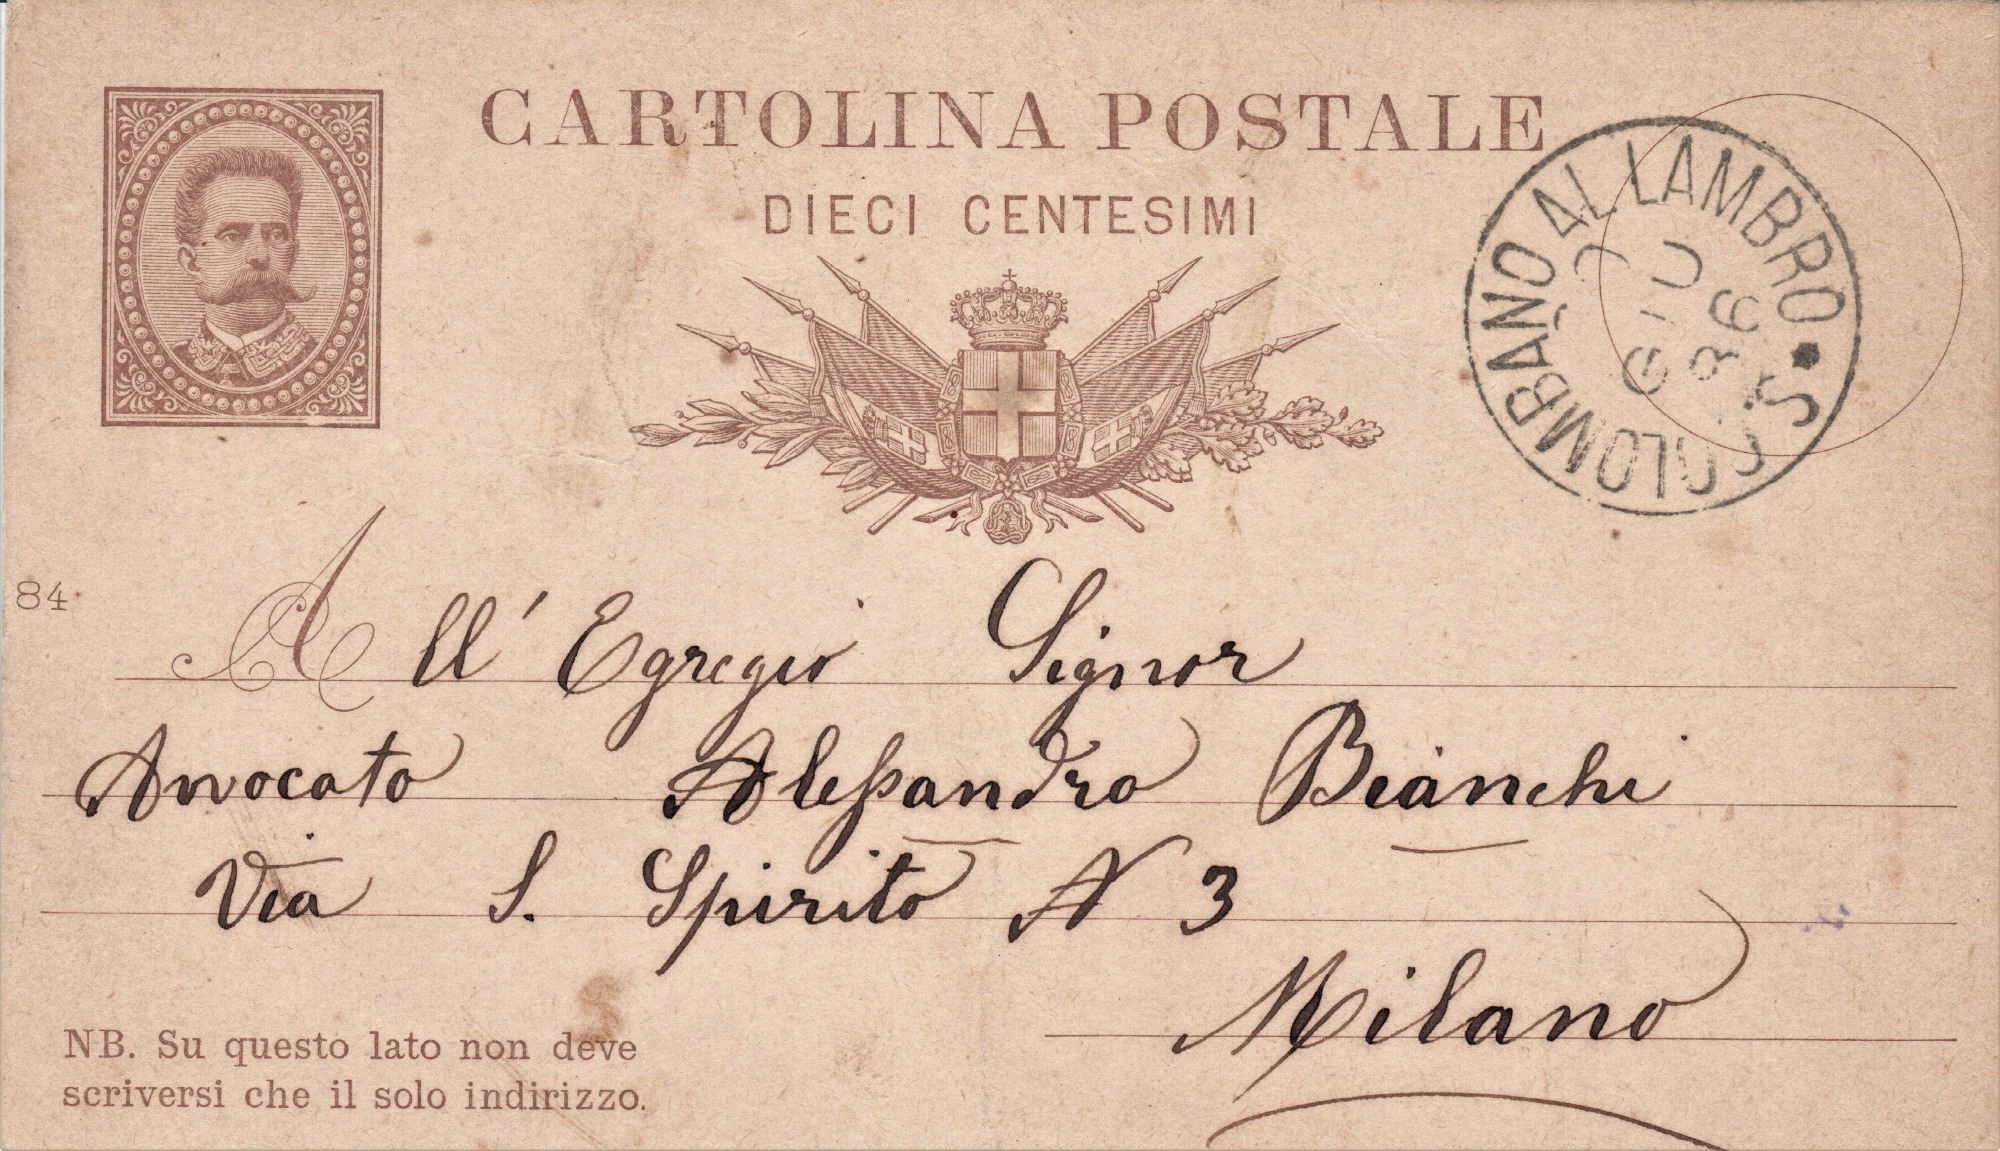 CARTOLINA POSTALE
DIECI CENTESIMI
S. COLOMBANO AL LAMBRO
GIU
86
84
All' Egregio Signor
Avvocato Alessandro Bianchi
Via S. Spirito N 3
Milano
NB. Su questo lato non deve
scriversi che il solo indirizzo.